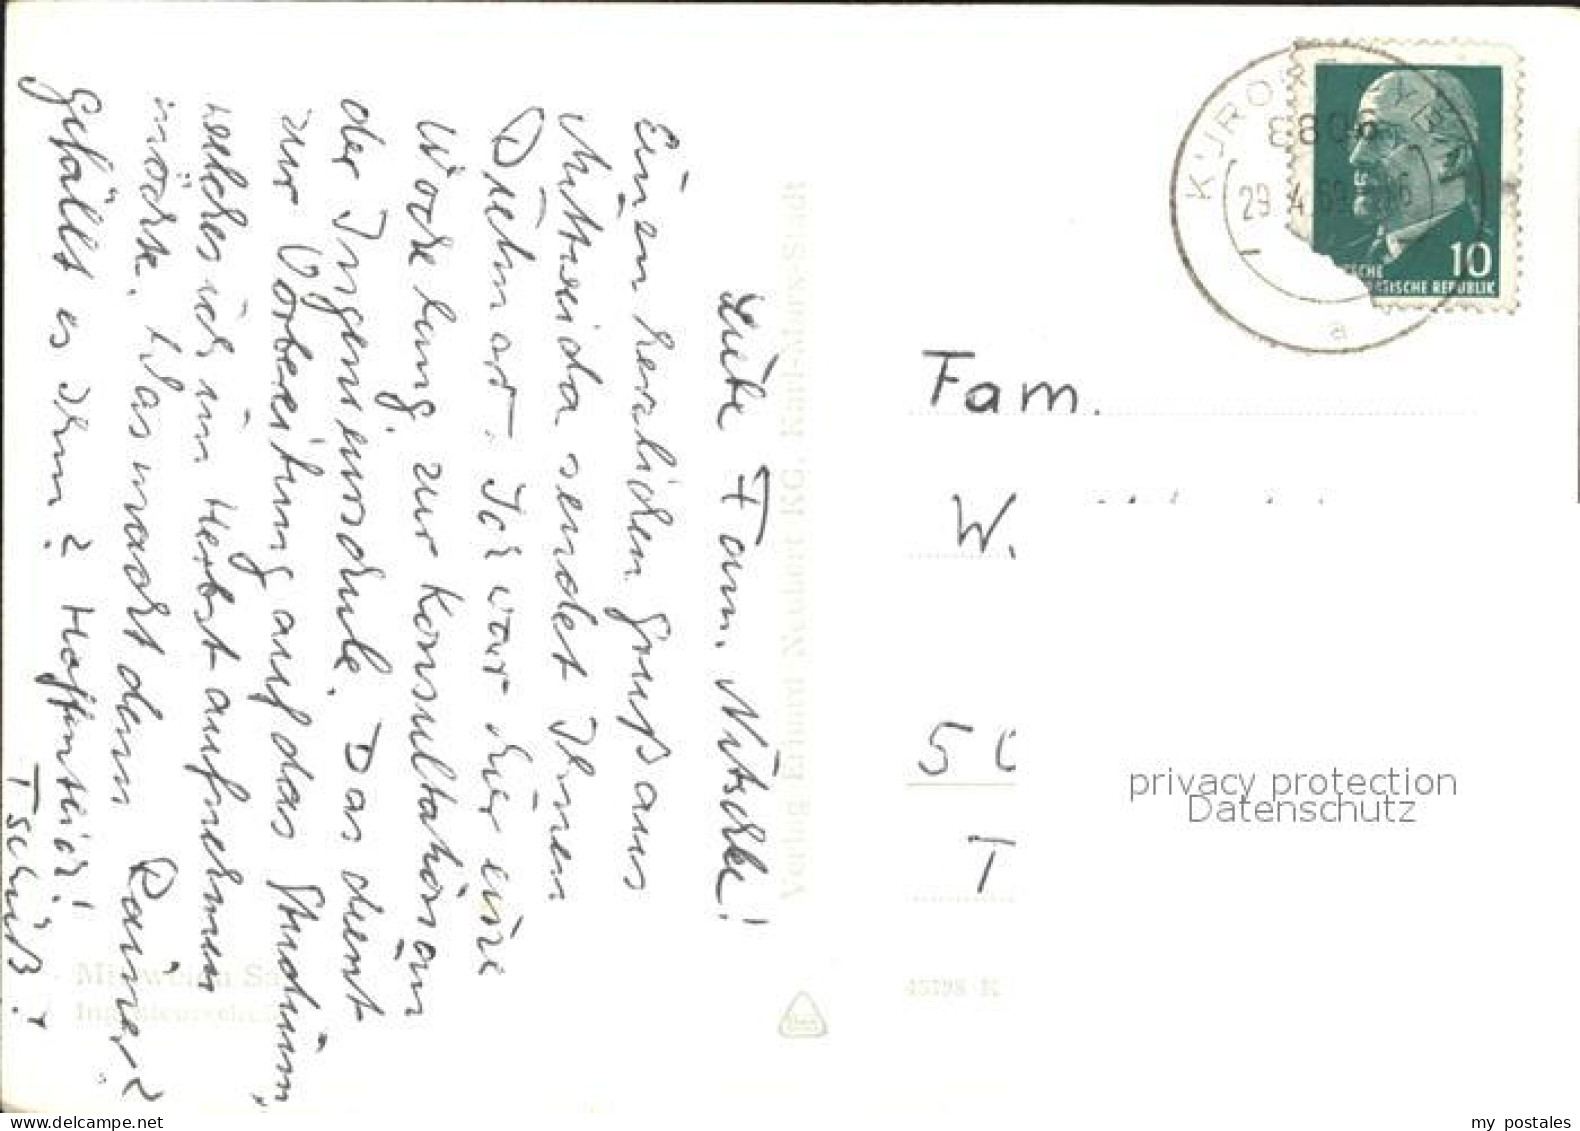 Liebe Fam. Nitschke!
Einen herzlichen Gruß aus
Mittweida sendet Ihnen
Dietmar. Ich war hier eine
Woche lang zur Konsultation an
der Ingenieurschule. Das dient
zur Vorbereitung auf das Studium,
welches ich im Herbst aufnehmen
möchte. Was macht denn Rainer?
Gefällt es ihm? Hoffentlich!
Tschüß!
Verlag Erhard Neubert KG, Karl-Marx-Stadt
Mittweida Sa
Ingenieurschule
8806
29.4.69
10
ISCHE REPUBLIK
a
Fam.
W.
T
privacy protection
Datenschutz
www.delcampe.net
my postales